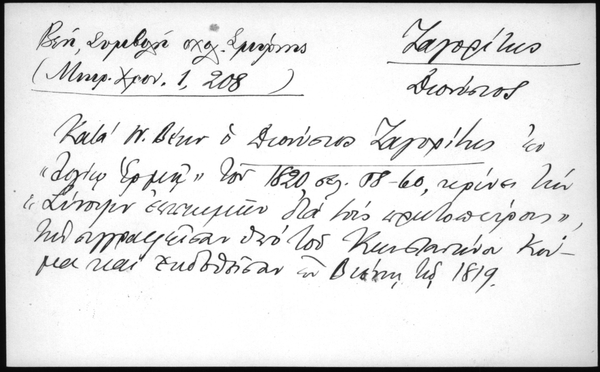 Βέη, Συμβολή σχολ. Σμύρνης
(Μικρ. Χρον. 1, 208 )
Ζαγορίτης
Διονύσιος
Κατά Ν. Βέην ὁ Διονύσιος Ζαγορίτης ἐν
"Λογίῳ Ἑρμῇ" τοῦ 1820, σελ. 58-60, κρίνει τήν
"Σύνοψιν ἐπιστημῶν διά τούς πρωτοπείρους",
τήν συγγραφεῖσαν ὑπό τοῦ Κωνσταντίνου Κού-
μα καί ἐκδοθεῖσαν ἐν Βιέννῃ τῷ 1819.